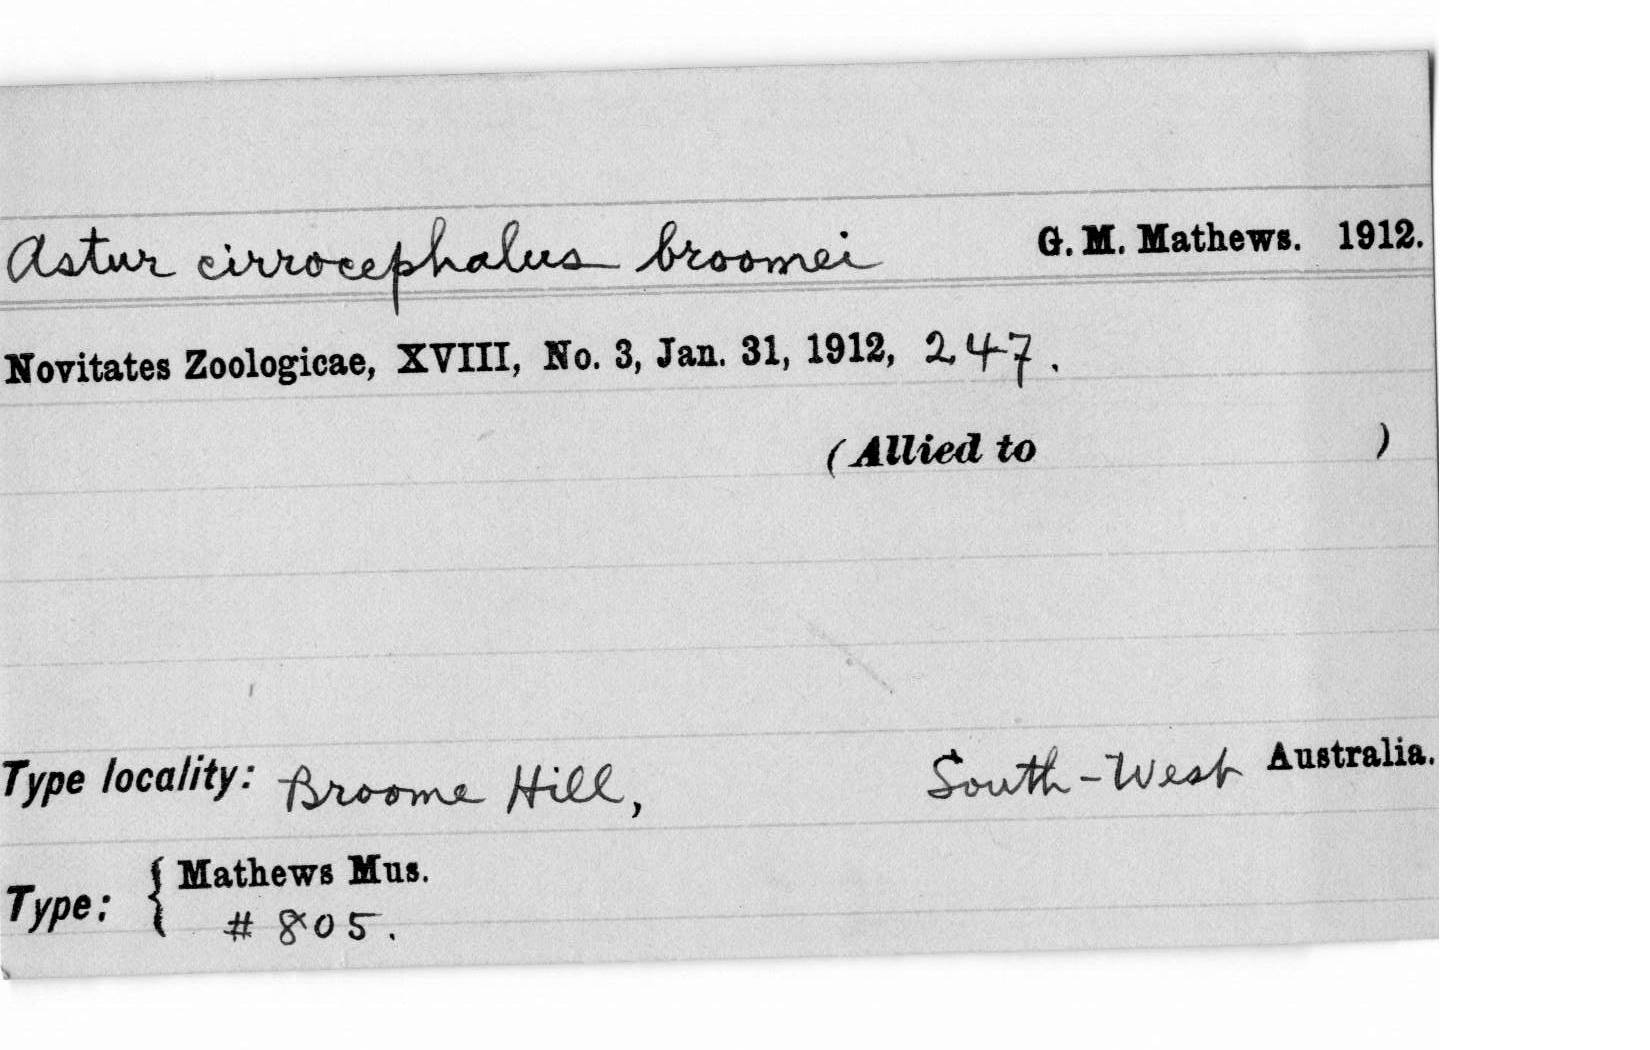 Astur cirrocephalus broomei G. M. Mathews. 1912.
Novitates Zoologicae, XVIII, No. 3, Jan. 31, 1912, 247.
(Allied to )
Type locality: Broome Hill, South-West Australia.
Type: { Mathews Mus.
# 805.